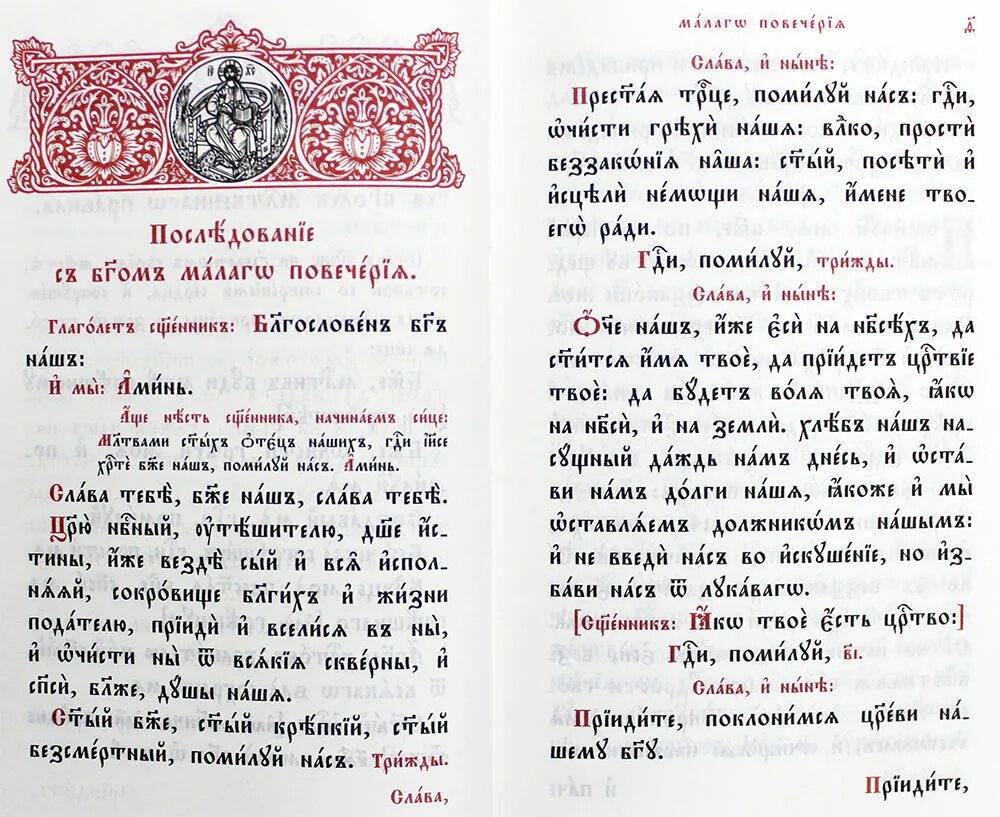 І҃С Х҃С
Послѣ́дованїе
съ бг҃омъ ма́лагѡ повече́рїѧ.
Глаго́летъ сщ҃е́нникъ: Бл҃гослове́нъ бг҃ъ
на́шъ:
И҆ мы̀: А҆ми́нь.
А҆́ще нѣ́сть сщ҃е́нника, начина́емъ си́це:
Мл҃твами ст҃ы́хъ ѻ҆тє́цъ на́шихъ, гдⷭ҇и і҆и҃се
хрⷭ҇тѐ бж҃е на́шъ, поми́лꙋй на́съ. А҆ми́нь.
Сла́ва тебѣ̀, бж҃е на́шъ, сла́ва тебѣ̀.
Цр҃ю̀ нбⷭ҇ный, ᲂу҆тѣ́шителю, дш҃е и҆́с-
тины, и҆́же вездѣ̀ сы́й и҆ всѧ̑ и҆спол-
нѧ́ѧй, сокро́вище бл҃ги́хъ и҆ жи́зни
пода́телю, прїидѝ и҆ всели́сѧ въ ны̀,
и҆ ѡ҆чи́сти ны̀ ѿ всѧ́кїѧ скве́рны, и҆
сп҃сѝ, бл҃же, дꙋ́шы на́шѧ.
Ст҃ы́й бж҃е, ст҃ы́й крѣ́пкїй, ст҃ы́й
безсме́ртный, поми́лꙋй на́съ. Три́жды.
Сла́ва,
ма́лагѡ повече́рїѧ
д҃
Сла́ва, и҆ ны́нѣ:
Прест҃а́ѧ трⷪ҇це, поми́лꙋй на́съ: гдⷭ҇и,
ѡ҆чи́сти грѣхѝ на́шѧ: влⷣко, простѝ
беззакѡ́нїѧ на̑ша: ст҃ы́й, посѣтѝ и҆
и҆сцѣлѝ не́мѡщи на́шѧ, и҆́мене тво-
егѡ̀ ра́ди.
Гдⷭ҇и, поми́лꙋй, три́жды.
Сла́ва, и҆ ны́нѣ:
Ѻ҆́ч҃е на́шъ, и҆́же є҆сѝ на нб҃сѣ́хъ, да
ст҃и́тсѧ и҆́мѧ твоѐ, да прїи́детъ црⷭ҇твїе
твоѐ: да бꙋ́детъ во́лѧ твоѧ̀, ꙗ҆́кѡ
на нб҃сѝ, и҆ на землѝ. хлѣ́бъ на́шъ на-
сꙋ́щный да́ждь на́мъ дне́сь, и҆ ѡ҆ста́-
ви на́мъ до́лги на́шѧ, ꙗ҆́коже и҆ мы̀
ѡ҆ставлѧ́емъ должникѡ́мъ на́шымъ:
и҆ не введѝ на́съ во и҆скꙋше́нїе, но и҆з-
ба́ви на́съ ѿ лꙋка́вагѡ.
[Сщ҃е́нникъ: Ꙗ҆́кѡ твоѐ є҆́сть црⷭ҇тво:]
Гдⷭ҇и, поми́лꙋй, в҃і.
Сла́ва, и҆ ны́нѣ:
Прїиди́те, поклони́мсѧ цр҃е́ви на́-
шемꙋ бг҃ꙋ.
Прїиди́те,